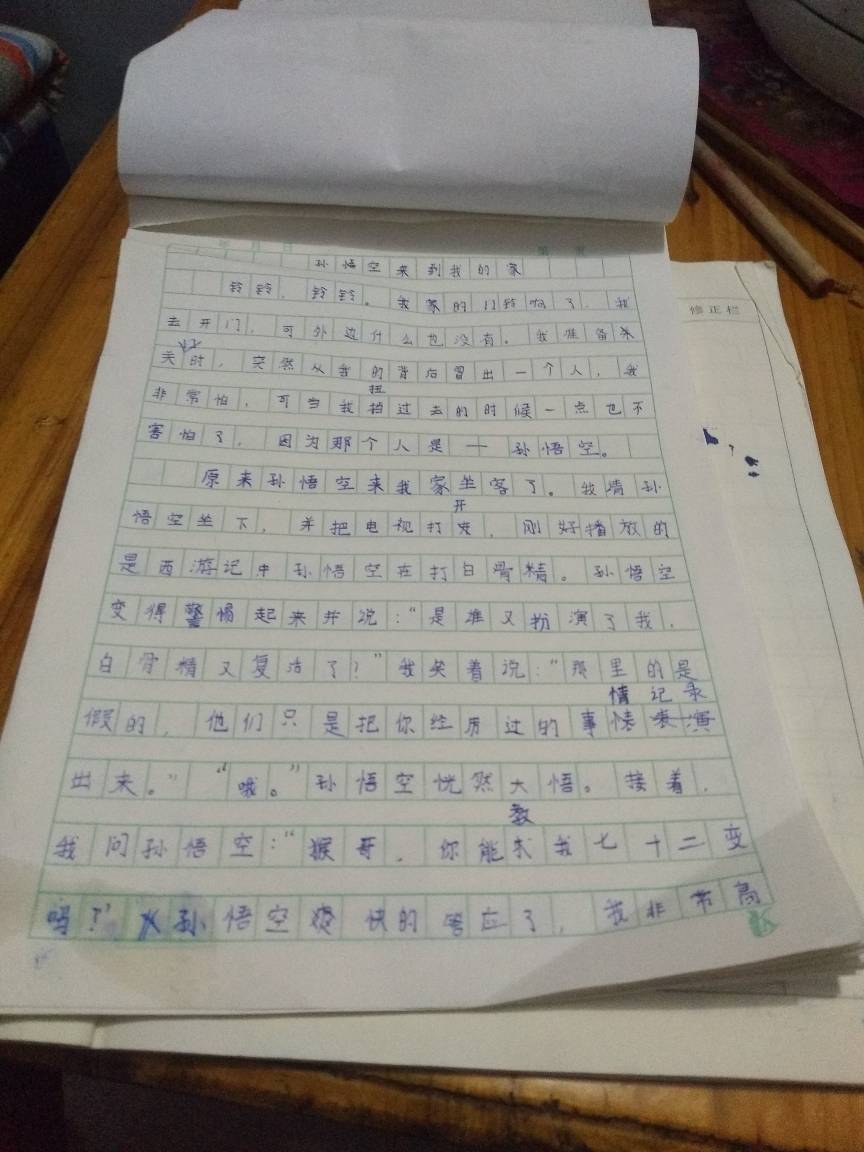 年 月 日 第 页
孙悟空来到我的家
铃铃,铃铃。我家的门铃响了,我
去开门,可外边什么也没有。我准备
关门时,突然从我的背后冒出一个人,我
非常怕,可当我扭过去的时候一点也不
害怕了,因为那个人是—孙悟空。
原来孙悟空来我家坐客了。我请孙
悟空坐下,并把电视打开,刚好播放的
是西游记中孙悟空在打白骨精。孙悟空
变得警惕起来并说:“是谁又扮演了我,
白骨精又复活了?”我笑着说:“那里的是
假的,他们只是把你经历过的事情记录
出来。”“哦。”孙悟空恍然大悟。接着,
我问孙悟空:“猴哥,你能教我七十二变
吗?”孙悟空爽快的答应了,我非常高
修正栏